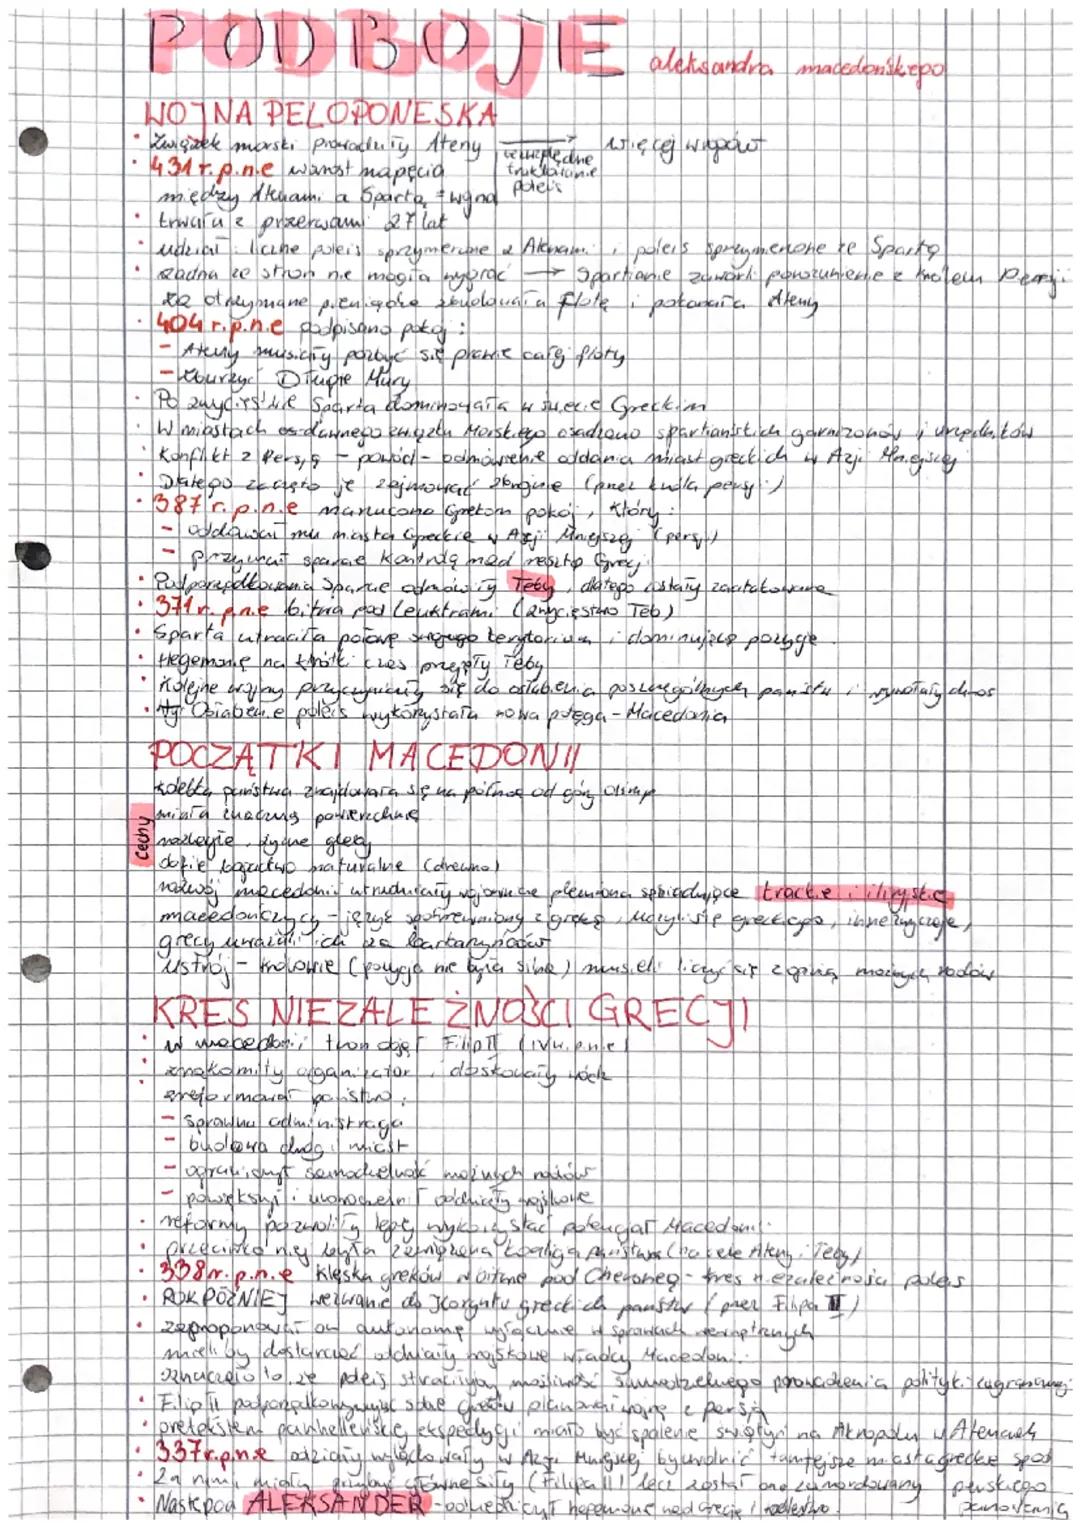 PODBOJE aleksandra macedońskego
WOJNA PELOPONESKA
Związek morski prowadziły Ateny → więcej wrogów
bezwzględne traktowanie poleis
431 r.p.n.e wzrost napięcia
między Atenami a Spartą = wojna
trwała z przerwami 27 lat
udział: liczne poleis sprzymierzone z Atenami i poleis sprzymierzone ze Spartą
żadna ze stron nie mogła wygrać → Spartianie zawarli porozumienie z królem Persji
za otrzymane pieniądze zbudowała flotę i pokonała Ateny
404 r.p.n.e podpisano pokój:
- Ateny musiały pozbyć się prawie całej floty
- zburzyć Długie Mury
Po zwycięstwie Sparta dominowała w świecie Greckim
W miastach dawnego związku Morskiego osadzono spartańskich garnizonów i urzędników
Konflikt z Persją - powód - odmówienie oddania miast greckich w Azji Mniejszej
Dlatego zaczęto je zajmować zbrojnie (przez króla persji)
387 r.p.n.e narzucono Grekom pokój, który:
- oddawał mu miasta Greckie w Azji Mniejszej (persji)
- przyznał sparcie kontrolę nad resztą Grecji
Podporządkowania Sparcie odmówiły Teby, dlatego zostały zaatakowane
371 r. p.n.e bitwa pod Leuktrami (zwycięstwo Teb)
Sparta utraciła połowę swojego terytorium i dominującą pozycję
Hegemonię na krótki czas przejęły Teby
Kolejne wojny przyczyniały się do osłabienia poszczególnych państw i wywołały chaos
Osłabienie poleis wykorzystała nowa potęga - Macedonia
POCZĄTKI MACEDONII
Cechy
kolebka państwa znajdowała się na północ od góry olimp
miała znaczną powierzchnię
rozległe, żyzne gleby
obfite bogactwo naturalne (drewno)
rozwój macedonii utrudniały wojownicze plemiona sąsiadujące trackie i iliryjskie
macedończycy - język spokrewniony z greką, uczyli się greckiego, inne zwyczaje,
grecy uważali ich za barbarzyńców
Ustrój - królowie (pozycja nie była silna) musieli liczyć się z opinią możnych rodów
KRES NIEZALEŻNOŚCI GRECJI
w macedonii tron objął Filip II (IVw.p.n.e)
znakomity organizator, doskonały wódz
zreformował państwo:
- sprawna administracja
- budowa dróg i miast
- ograniczył samodzielność możnych rodów
- powiększył i unowocześnił oddziały wojskowe
reformy pozwoliły lepiej wykorzystać potencjał Macedonii
przeciwko niej była zawiązana koalicja państw (na czele Ateny i Teby)
338 r.p.n.e klęska greków w bitwie pod Cheroneą - kres niezależności poleis
ROK PÓŹNIEJ wezwanie do Koryntu greckich państw (przez Filipa II)
zaproponował on autonomię wyłącznie w sprawach wewnętrznych
mieli by dostarczać oddziały wojskowe władcy Macedonii
oznaczało to, że poleis straciły możliwość samodzielnego prowadzenia polityki zagranicznej
Filip II podporządkowywując sobie greków planował wojnę z persją
pretekstem panhelleńskiej ekspedycji miało być spalenie świątyń na Akropolu w Atenach
337 r.p.n.e odziały wylądowały w Azji Mniejszej, by uwolnić tamtejsze miasta greckie spod perskiego panowania
Za nimi miały przybyć główne siły (Filipa II) lecz został on zamordowany
Następca ALEKSANDER - hegemonię nad Grecją i